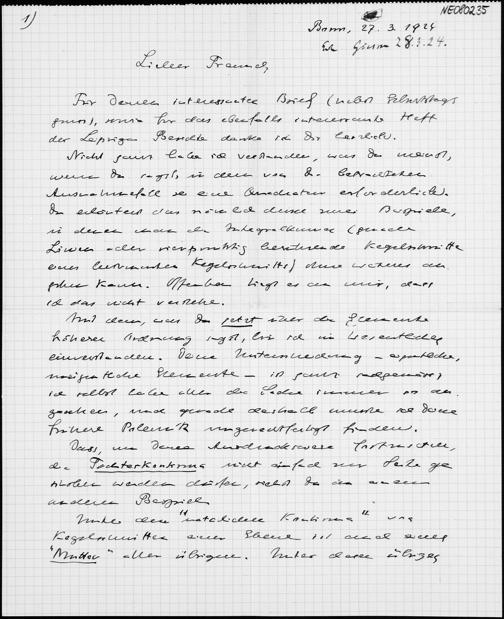 1)
NE080235
Bonn, 27. 3. 1924
28.3.24.
Lieber Freund,
Für Deinen interessanten Brief (nebst Geburtstags
gruss), sowie für das ebenfalls interessante Heft
der Leipziger Berichte danke ich Dir herzlich.
Nicht ganz habe ich verstanden, was Du meinst,
wenn Du sagst, in dem von Dir betrachteten
Ausnahmefall sei eine Quadratur erforderlich.
Du erläuterst das nämlich durch zwei Beispiele,
in denen man die Integralkurven (gerade
Linien oder vierpunktig berührende Kegelschnitte
eines bestimmten Kegelschnitts) ohne weiteres an
geben kann. Offenbar liegt es an mir, dass
ich das nicht verstehe.
Mit dem, was Du jetzt über die Elemente
höherer Ordnung sagst, bin ich im Wesentlichen
einverstanden. Deine Unterscheidung – eigentliche,
uneigentliche Elemente – ist ganz sachgemäss;
ich selbst habe aber die Sache immer so an-
gesehen, und gerade deshalb musste ich Deine
frühere Polemik ungerechtfertigt finden.
Dass, um Deine Ausdrucksweise
die Tochterkontinua nicht einfach zur Seite ge
schoben werden dürfen, siehst Du an einem
anderen Beispiel.
Unter den "natürlichen Kontinua" von
Kegelschnitten einer Ebene ist auch eines
"Mutter" aller übrigen. Unter diesen übrigen